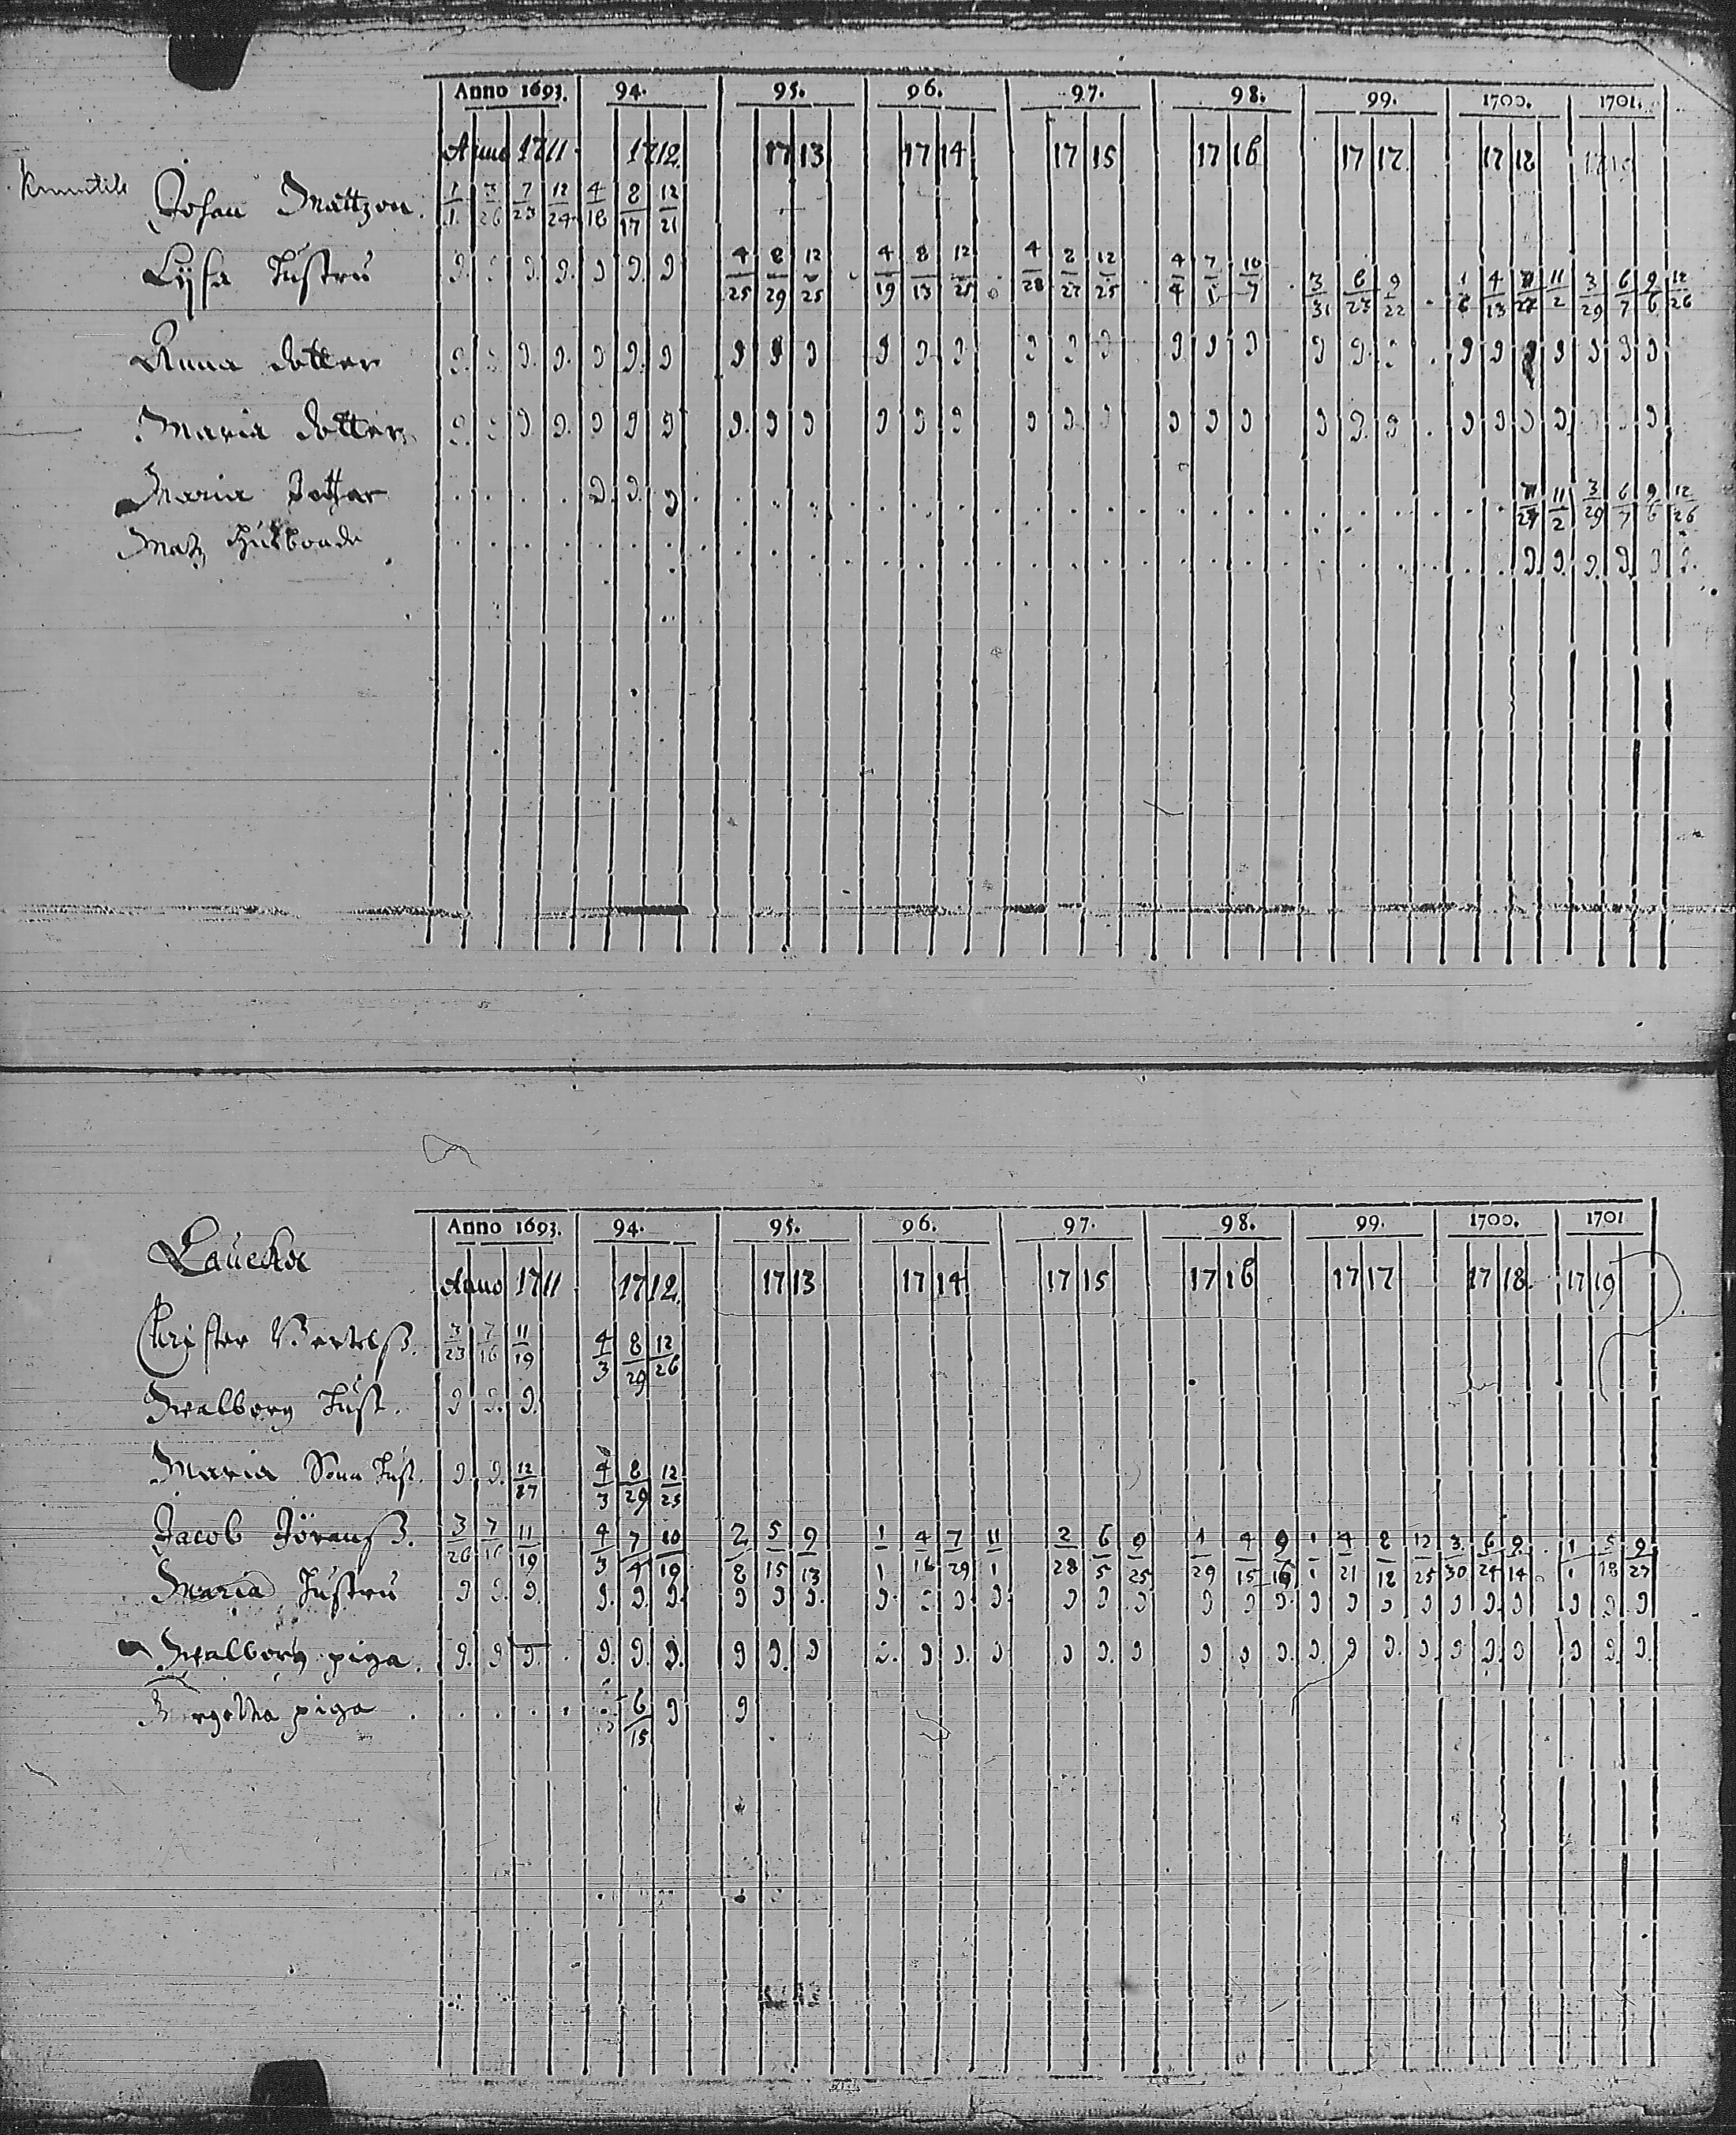 Anno 1693. 94. 95. 96. 97. 98. 99. 1700. 1701.
Anno 1711 1712 1713 1714 1715 1716 1717 1718 1719
Johan Mattzon. 1/1 3/26 7/23 12/24 4/18 8/17 12/21
Lijsa hustru 9. 9. 9. 9. 9 9. 9 4/25 8/29 12/25 4/19 8/13 12/25 4/28 8/27 12/25 4/4 7/1 10/7 3/31 6/23 9/22 4/13 11/2 3/29 6/7 9/6 12/26
Anna dotter 9. 9. 9. 9. 9 9. 9 9 9 9 9 9 9 9 9 9 9 9 9 9 9. 9 9 9 9 9 9 9 9
Maria dotter 9. 9. 9. 9. 9 9 9 9. 9 9 9 9 9 9 9 9 9 9 9 9 9. 9 9 9 9 9 9
Maria dotter 9. 9. 9 11/2 3/29 6/7 9/6 12/26
Matz husbonde 9. 9. 9. 9. 9 9.
Anno 1693. 94. 95. 96. 97. 98. 99. 1700. 1701
Laucka
Anno 1711 1712. 1713 1714 1715 1716 1717 1718. 1719
Christer Bertelss. 3/23 7/16 11/19 4/3 8/29 12/26
Walborg hust. 9 9. 9.
Maria Sona hust. 9. 9. 12/27 4/3 8/29 12/25
Jacob Jöranss. 3/26 7/16 11/19 4/3 7/4 10/19 2/8 5/15 9/13 1/1 4/18 7/29 11/1 2/28 6/5 9/25 1/29 4/15 9/16 1/1 4/21 8/18 12/25 3/30 6/24 9/14 1/1 5/18 9/27
Maria hustru 9 9. 9. 9. 9. 9. 9 9 9. 9. 9 9 9. 9 9 9 9 9 9. 9 9 9 9 9 9. 9 9 9. 9
Walborg piga. 9. 9 9. 9. 9. 9. 9 9. 9 9. 9 9. 9 9 9. 9 9 9 9. 9. 9 9. 9. 9 9. 9 9 9. 9.
piga 6/15 9 9